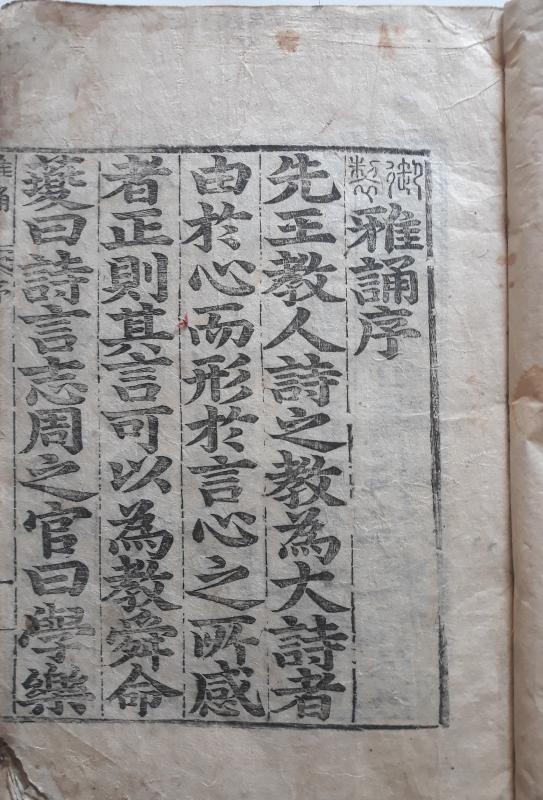 御製雅誦序
先王教人詩之教為大詩者
由於心而形於言心之所感
者正則其言可以為教舜命
夔曰詩言志周之官曰學樂
雅誦
序
一